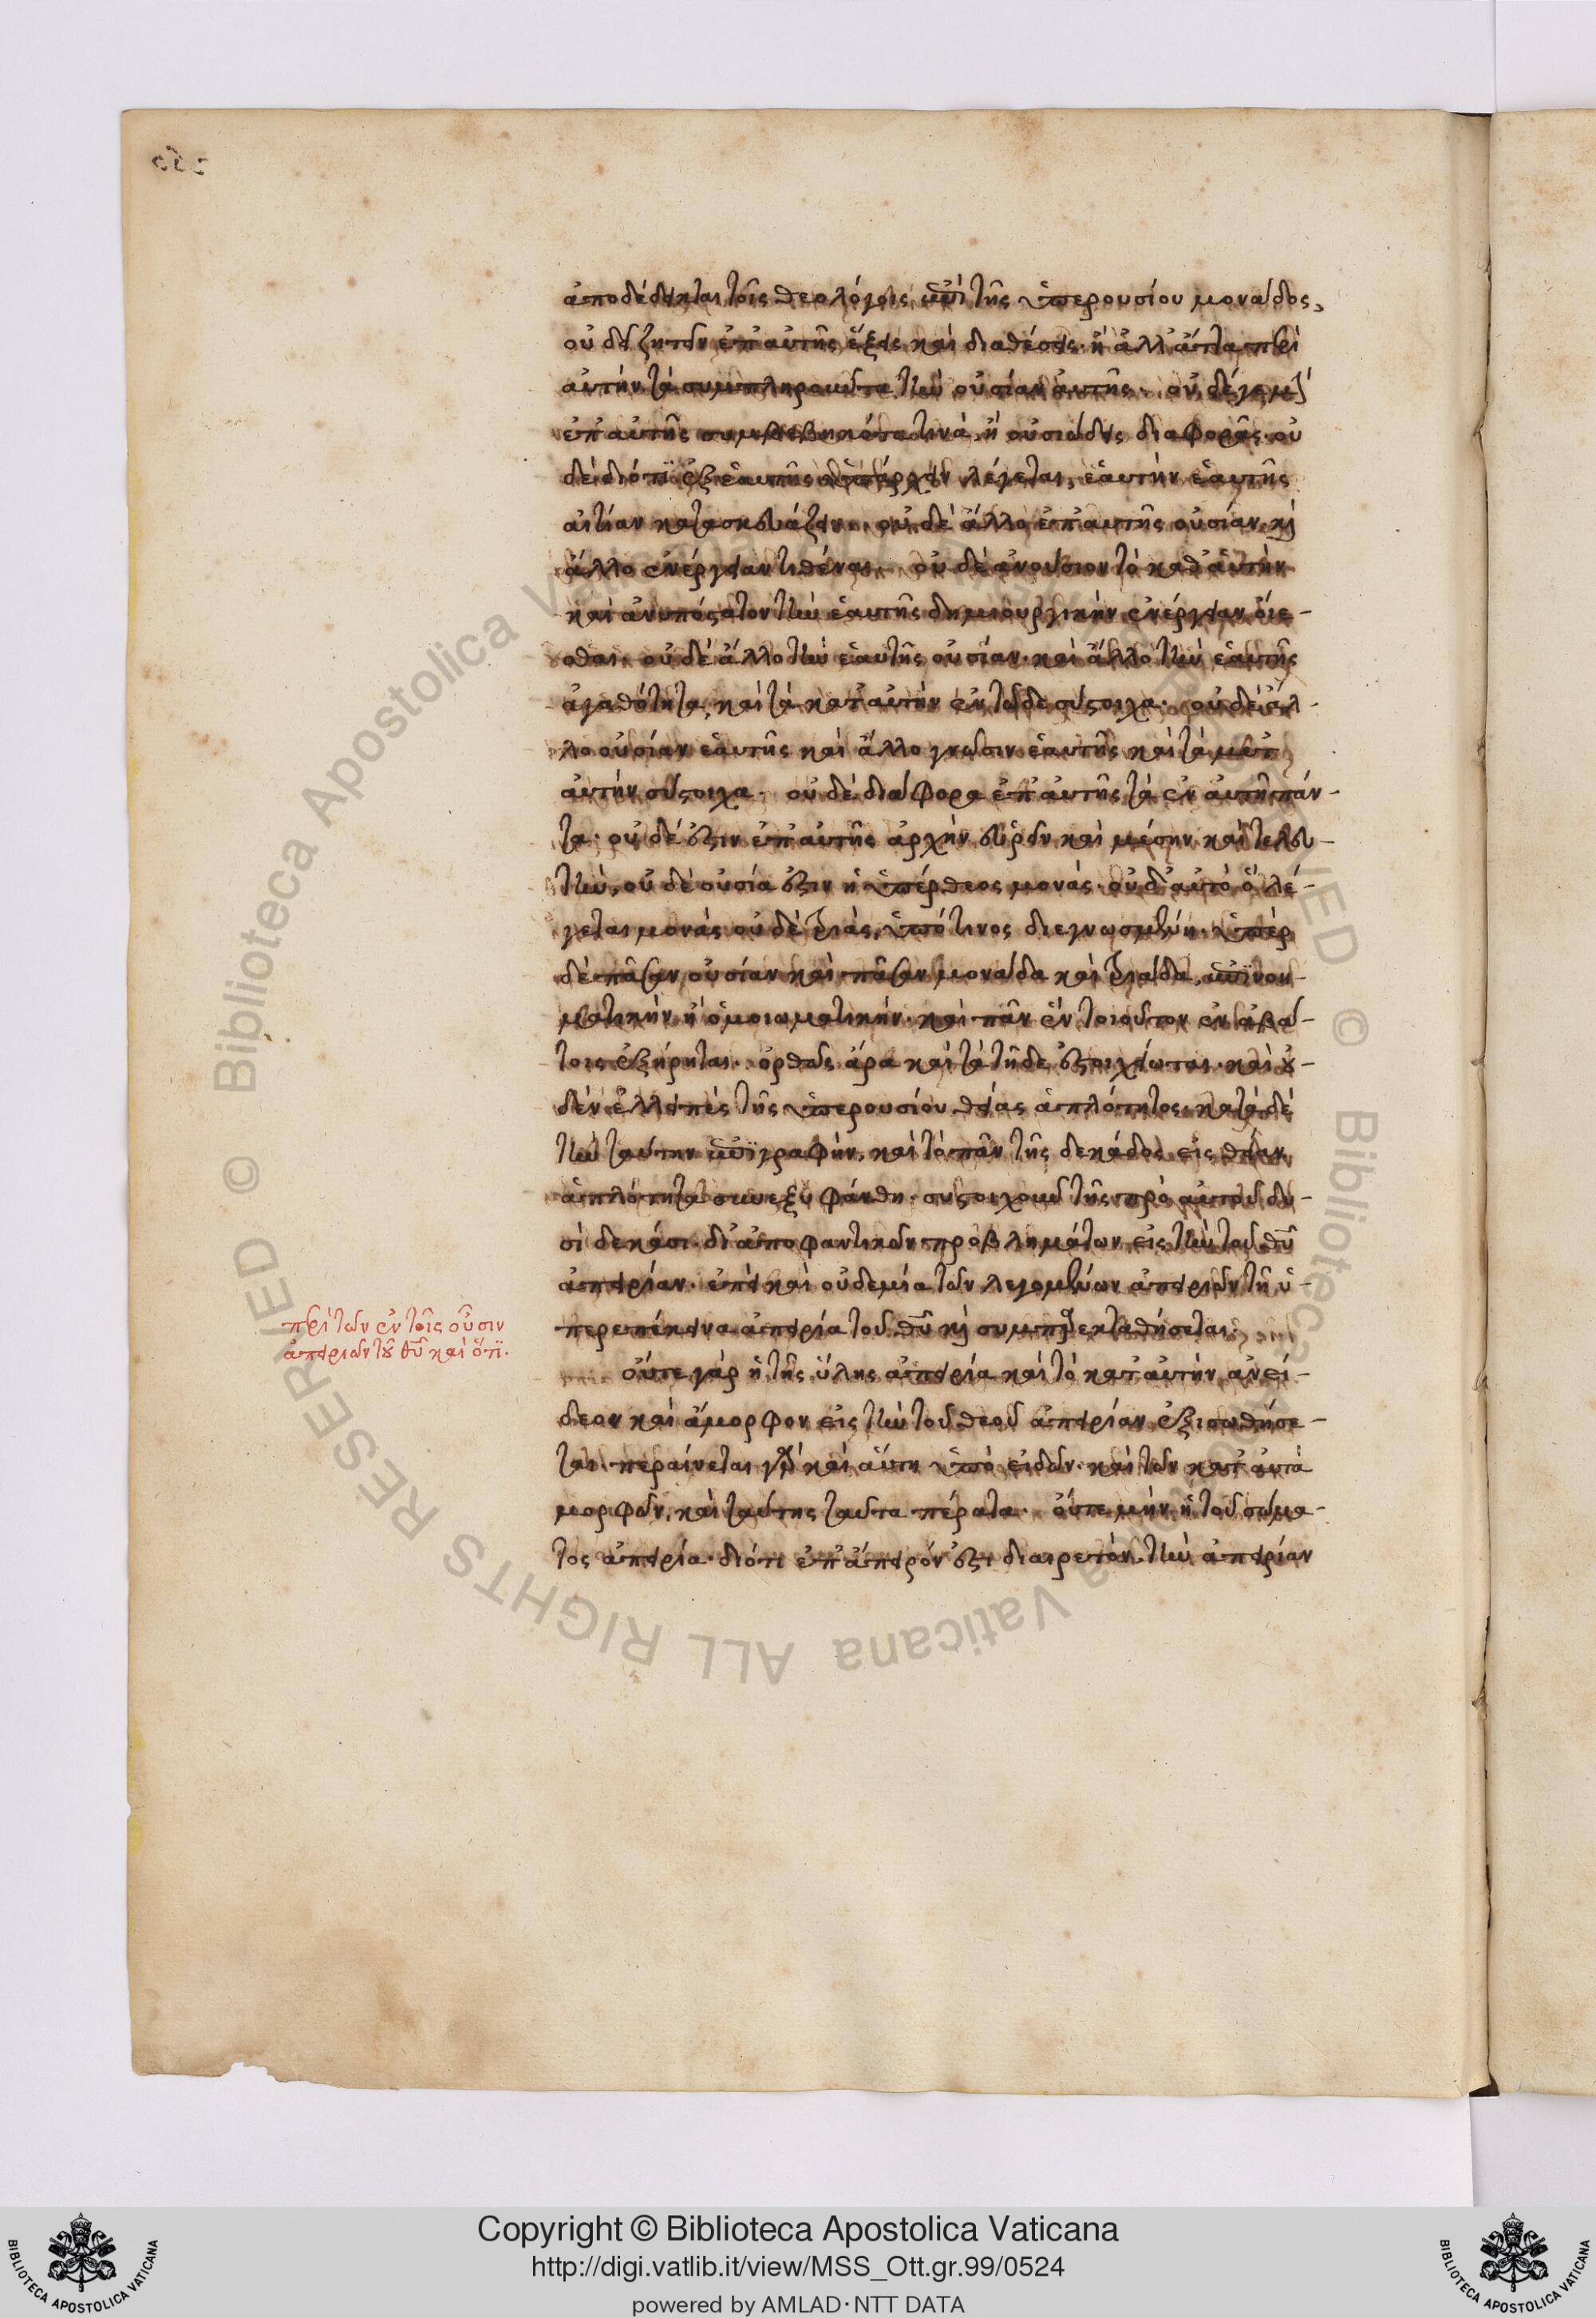 ἀποδέδεικται τοῖς θεολόγοις ἐπὶ τῆς ὑπερουσίου μονάδος,
οὐ δεῖ ζητεῖν ἐπ' αὐτῆς ἕξεις καὶ διαθέσεις· ἢ ἄλλ' ἄττα περὶ
αὐτὴν τὰ συμπληροῦντα τὴν οὐσίαν αὐτῆς· οὐδέ γε μὴν
ἐπ' αὐτῆς συμβεβηκότα τινὰ ἢ οὐσιώδεις διαφορᾶς· οὐ
δὲ διότι ἐξ ἑαυτῆς ὑπάρχειν λέγεται, ἑαυτὴν ἑαυτῆς
αἰτίαν κατασκευάζειν· οὐδὲ ἄλλο ἐπ' αυτῆς οὐσίαν, καὶ
ἄλλο ἐνέργειαν τιθέναι· οὐδὲ ἀνούσιον τὸ καθ' αὑτὴν
καὶ ἀνυπόστατον τὴν ἑαυτῆς δημιουργικὴν ἐνέργειαν οἴε-
σθαι· οὐδὲ ἄλλο τὴν ἑαυτῆς οὐσίαν· καὶ ἄλλο τὴν ἑαυτῆς
ἀγαθότητα, καὶ τὰ κατ' αὐτὴν ἐν τῶδε σύστοιχα· οὐδὲ ἄλ-
λο οὐσίαν ἑαυτῆς καὶ ἄλλο γνῶσιν ἑαυτῆς καὶ τὰ μετ'
αὐτὴν σύστοιχα· οὐδὲ διάφορα ἐπ' αὐτῆς τὰ ἐν αὐτῇ πάν-
τα· οὐδέ ἐστιν ἐπ' αὐτῆς ἀρχὴν εὑρεῖν καὶ μέσην καὶ τελευ-
τὴν, οὐδὲ οὐσία ἐστιν ἡ ὑπέρθεος μονάς· οὐδ' αὐτὸ ὃ λέ-
γεται μονὰς οὐδὲ τριὰς, ὑπό τινος διεγνωσμένη· ὑπὲρ
δὲ πᾶσαν οὐσίαν καὶ πᾶσαν μονάδα καὶ τριάδα, ἐπινοη-
ματικὴν ἢ ὁμοιωματικήν· καὶ πᾶν ἓν τοιοῦτον ἐν ἀβά-
τοις ἐξήρηται· ὀρθῶς ἄρα καὶ τὰ τῇδε ἐστοιχείωται· καὶ οὐ-
δὲν ἐλλειπὲς τῆς ὑπερουσίου θείας ἁπλότητος· κατὰ δὲ
τὴν ταύτην ἐπιγραφὴν, καὶ τὸ πᾶν τῆς δεκάδος εἰς θείαν
ἁπλότητα συνεξυφάνθη· συστοιχοῦν τῆς πρὸ αὐτοῦ δυ-
σὶ δεκάσι· δι' ἀποφαντικῶν προβλημάτων εἰς τὴν τοῦ θυ
ἀπειρίαν· ἐπεὶ καὶ οὐδεμία τῶν λεγομένων ἀπειριῶν τῇ ὑ-
περεπέκεινα ἀπειρία τοῦ θυ καὶ συμπαρεκταθήσεται·
περὶ τῶν ἐν τοῖς οὖσιν
ἀπειριῶν τοῦ θυ καὶ ὅτι·
οὔτε γὰρ ἡ τῆς ὕλης ἀπειρία καὶ τὸ κατ' αὐτὴν ἀνεί-
δεον καὶ ἄμορφον εἰς τὴν τοῦ θεοῦ ἀπειρίαν ἐξισωθήσε-
ται· περαίνεται γὰρ καὶ αὕτη ὑπὸ εἰδῶν· καὶ τῶν κατ' αὐτὰ
μορφῶν, καὶ ταύτης ταῦτα πέρατα· οὔτε μὴν ἡ τοῦ σώμα-
τος ἀπειρία· διότι ἐπ' ἄπειρόν ἐστι διαιρετὸν· τὴν ἀπειρίαν
Copyright © Biblioteca Apostolica Vaticana
http://digi.vatlib.it/view/MSS_Ott.gr.99/0524
powered by AMLAD·NTT DATA